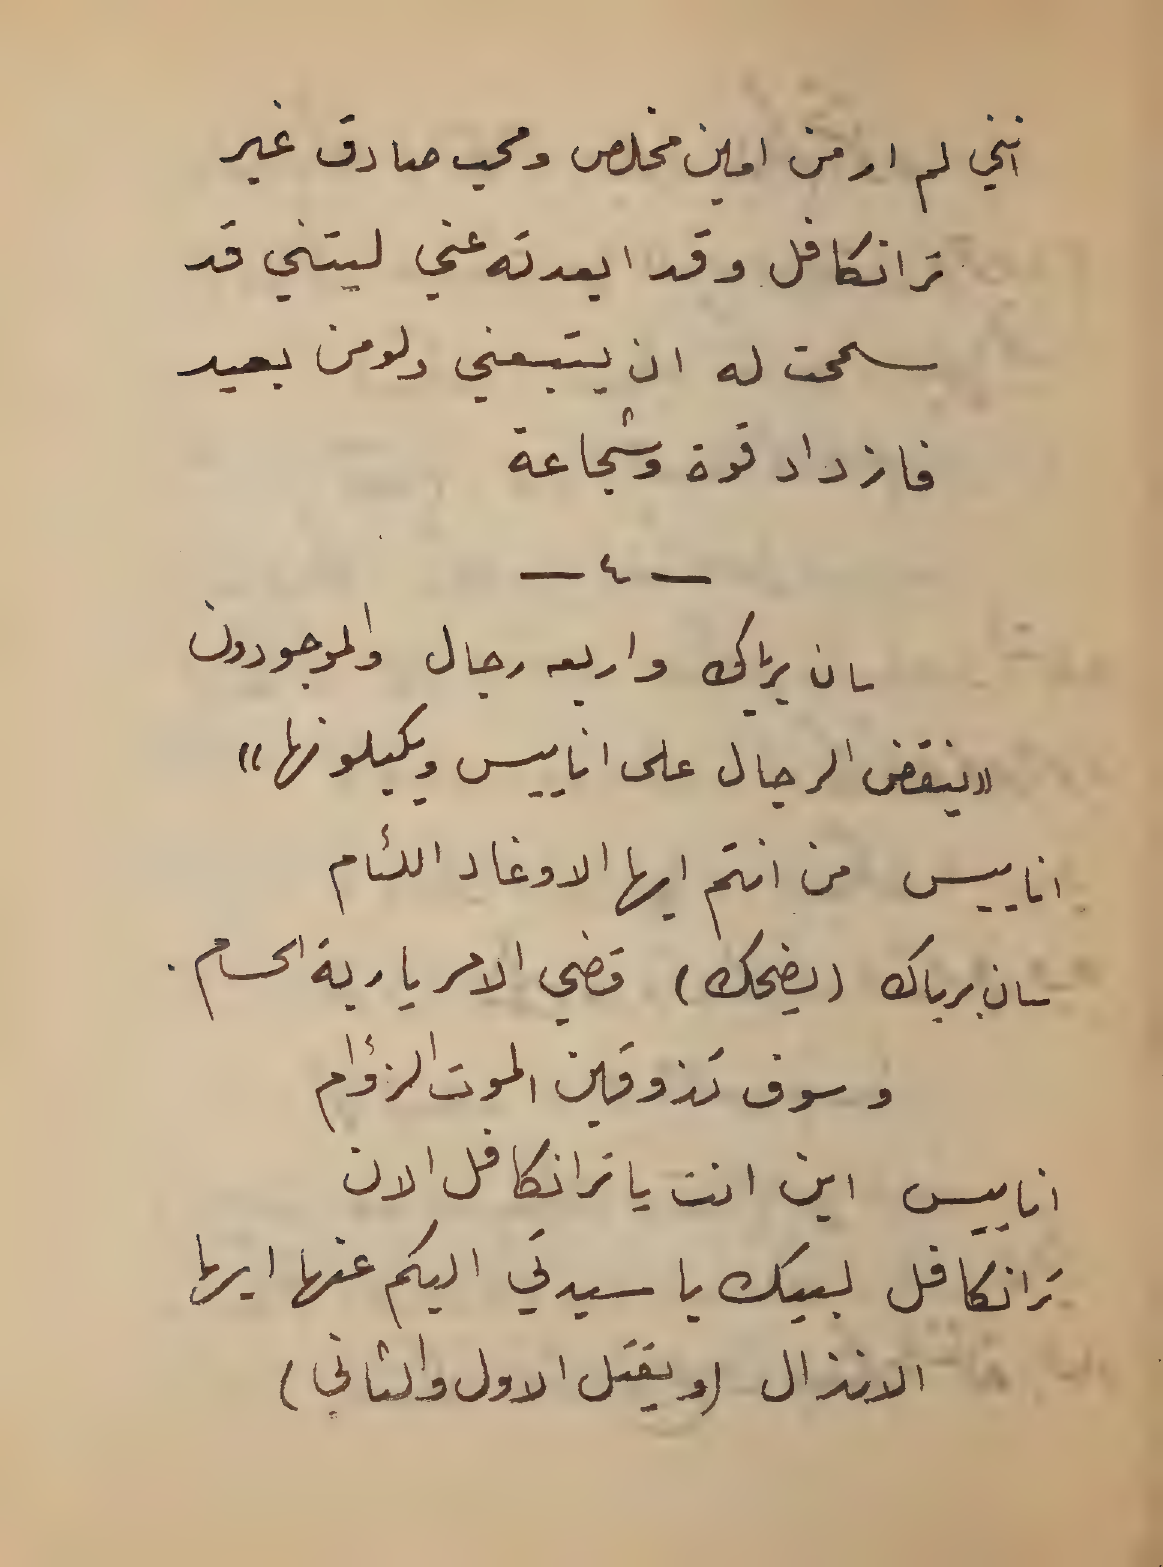 انني لم ار من امين مخلص ومحب صادق غير
ترانكافل وقد ابعدته عني ليتني قد
سمحت له ان يتبعني ولو من بعيد
فازداد قوة وشجاعة
— ٤ —
سان برياك واربعه رجال والموجودون
«ينقض الرجال على اناييس ويكبلونها»
اناييس من انتم ايها الاوغاد اللئام
سان برياك (يضحك) قضي الامر يا ربة الحسام.
وسوف تذوقين الموت الزؤام
اناييس اين انت يا ترانكافل الان
ترانكافل لبيك يا سيدتي اليكم عنها ايها
الانذال (ويقتل الاول والثاني)